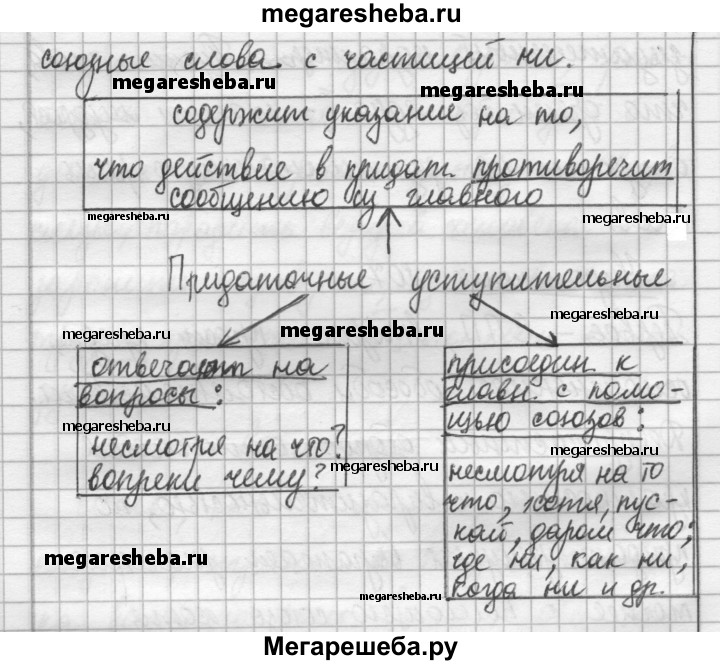 megaresheba.ru
союзные слова с частицей ни.
megaresheba.ru
megaresheba.ru
содержит указание на то,
что действие в придат. противоречит
сообщению гл главного
megaresheba.ru
megaresheba.ru
Придаточные уступительные
megaresheba.ru
megaresheba.ru
megaresheba.ru
отвечают на
вопросы:
присоедин. к
главн. с помо-
щью союзов:
megaresheba.ru
несмотря на что?
вопреки чему?
megaresheba.ru
несмотря на то
что, хотя, пус-
кай, даром что;
где ни, как ни,
когда ни и др.
megaresheba.ru
megaresheba.ru
Мегарешеба.ру